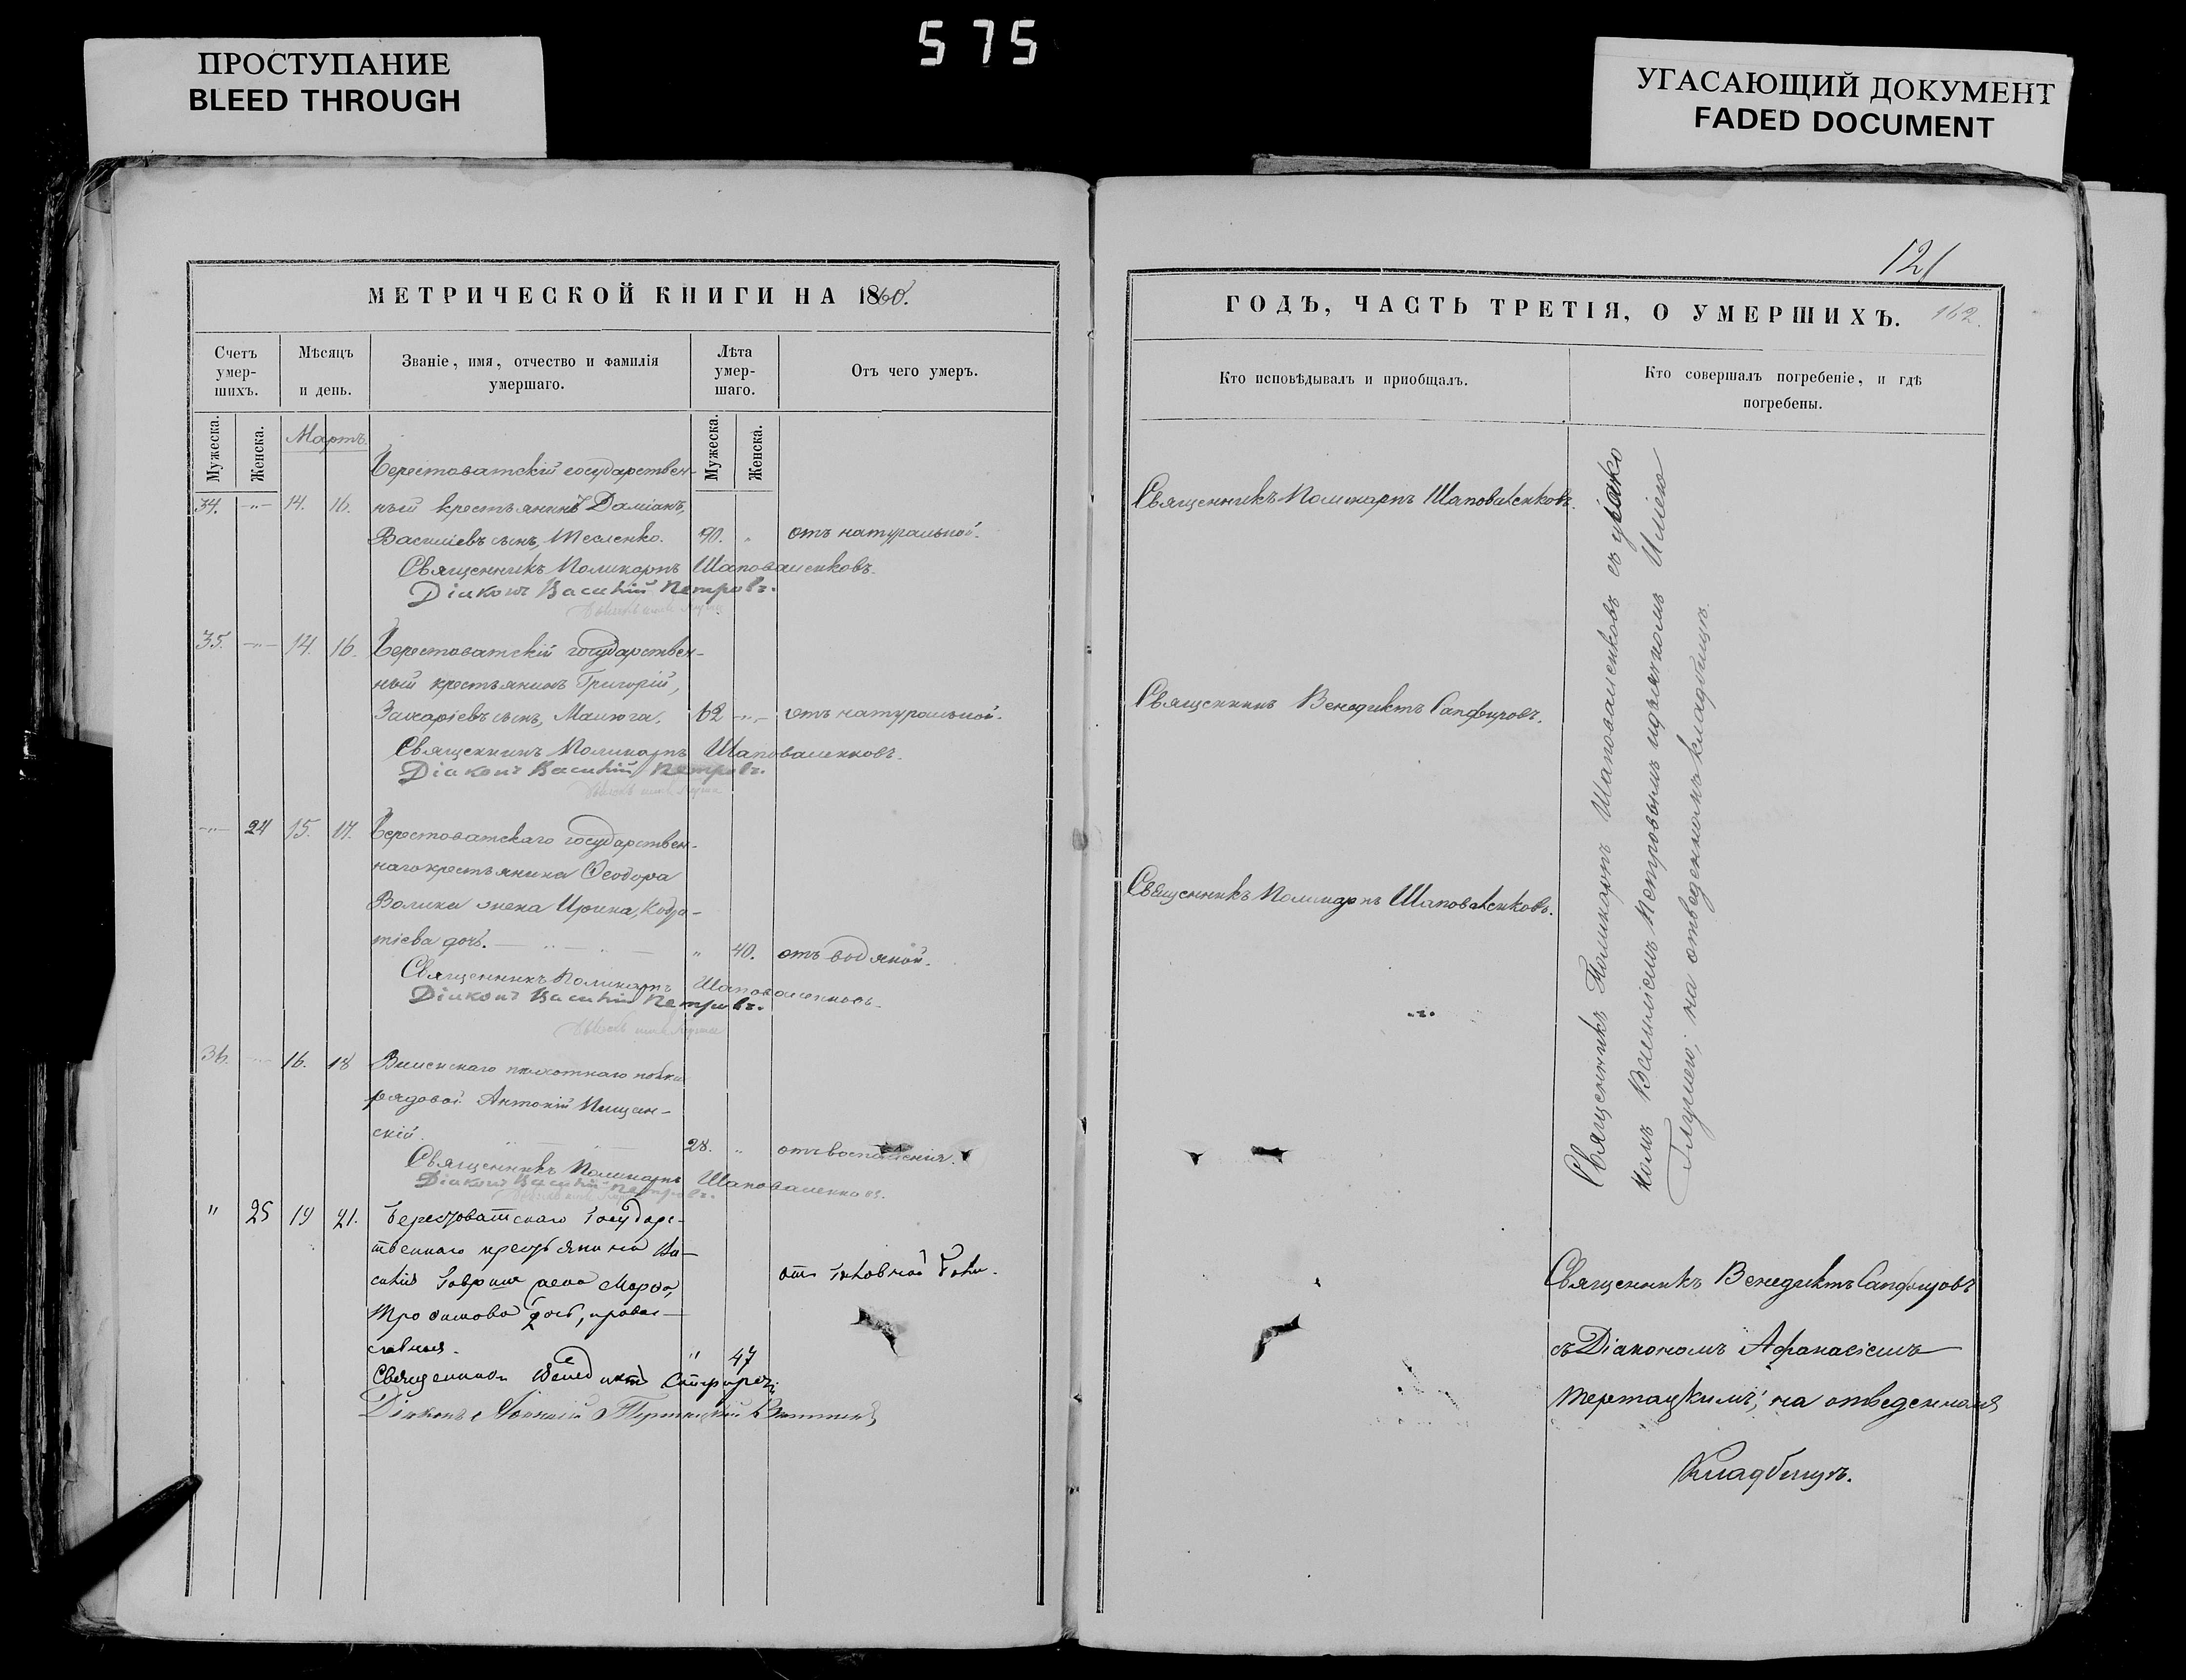 575
ПРОСТУПАНИЕ
BLEED THROUGH
УГАСАЮЩИЙ ДОКУМЕНТ
FADED DOCUMENT
МЕТРИЧЕСКОЙ КНИГИ НА 1860.
Счетъ умер-шихъ.
Мѣсяцъ и день.
Званіе, имя, отчество и фамилія умершаго.
Лѣта умер-шаго.
Отъ чего умеръ.
Мужеска.
Женска.
Мужеска.
Женска.
Мартъ.
Берестоватскій государствен-
34. -"- 14. 16. ный крестьянинъ Даміанъ,
Василіевъ сынъ, Тесленко. 90. " отъ натуральной.
Священникъ Поликарпъ Шаповаленковъ.
Діаконъ Василій Петровъ.
35. -"- 14. 16. Берестоватскій государствен-
ный крестьянинъ Григорій,
Захаріевъ сынъ, Малюга. 62 -"- отъ натуральной.
Священникъ Поликарпъ Шаповаленковъ.
Діаконъ Василій Петровъ.
-"- 24 15. 17. Берестоватскаго государствен-
наго крестьянина Ѳеодора
Волика жена Ирина, Кодра-
тіева дочь. " 40. отъ водяной.
Священникъ Поликарпъ Шаповаленковъ.
Діаконъ Василій Петровъ.
36. 16. 18 Виленскаго пѣхотнаго полка
рядовой Антоній Пищан-
скій. 28. " отъ воспаленія.
Священникъ Поликарпъ Шаповаленковъ.
Діаконъ Василій Петровъ.
" 25 19 21. Берестоватскаго Государс-
твеннаго крестьянина Ва-
силія жена Марѳа, отъ головной боли.
Трофимова дочь, право-
славная. " 47
Священникъ Венедиктъ Сапфировъ
Діаконъ
121
ГОДЪ, ЧАСТЬ ТРЕТІЯ, О УМЕРШИХЪ.
162.
Кто исповѣдывалъ и пріобщалъ.
Кто совершалъ погребеніе, и гдѣ погребены.
Священникъ Поликарпъ Шаповаленковъ.
Священникъ Венедиктъ Сапфировъ.
Священникъ Поликарпъ Шаповаленковъ.
-"-
Священникъ Поликарпъ Шаповаленковъ съ діако
номъ Василіемъ Петровымъ и дьячкомъ Иліею
на отведенномъ кладбищѣ.
Священникъ Венедиктъ Сапфировъ
съ Діакономъ Афанасіемъ
на отведенномъ
Кладбищѣ.